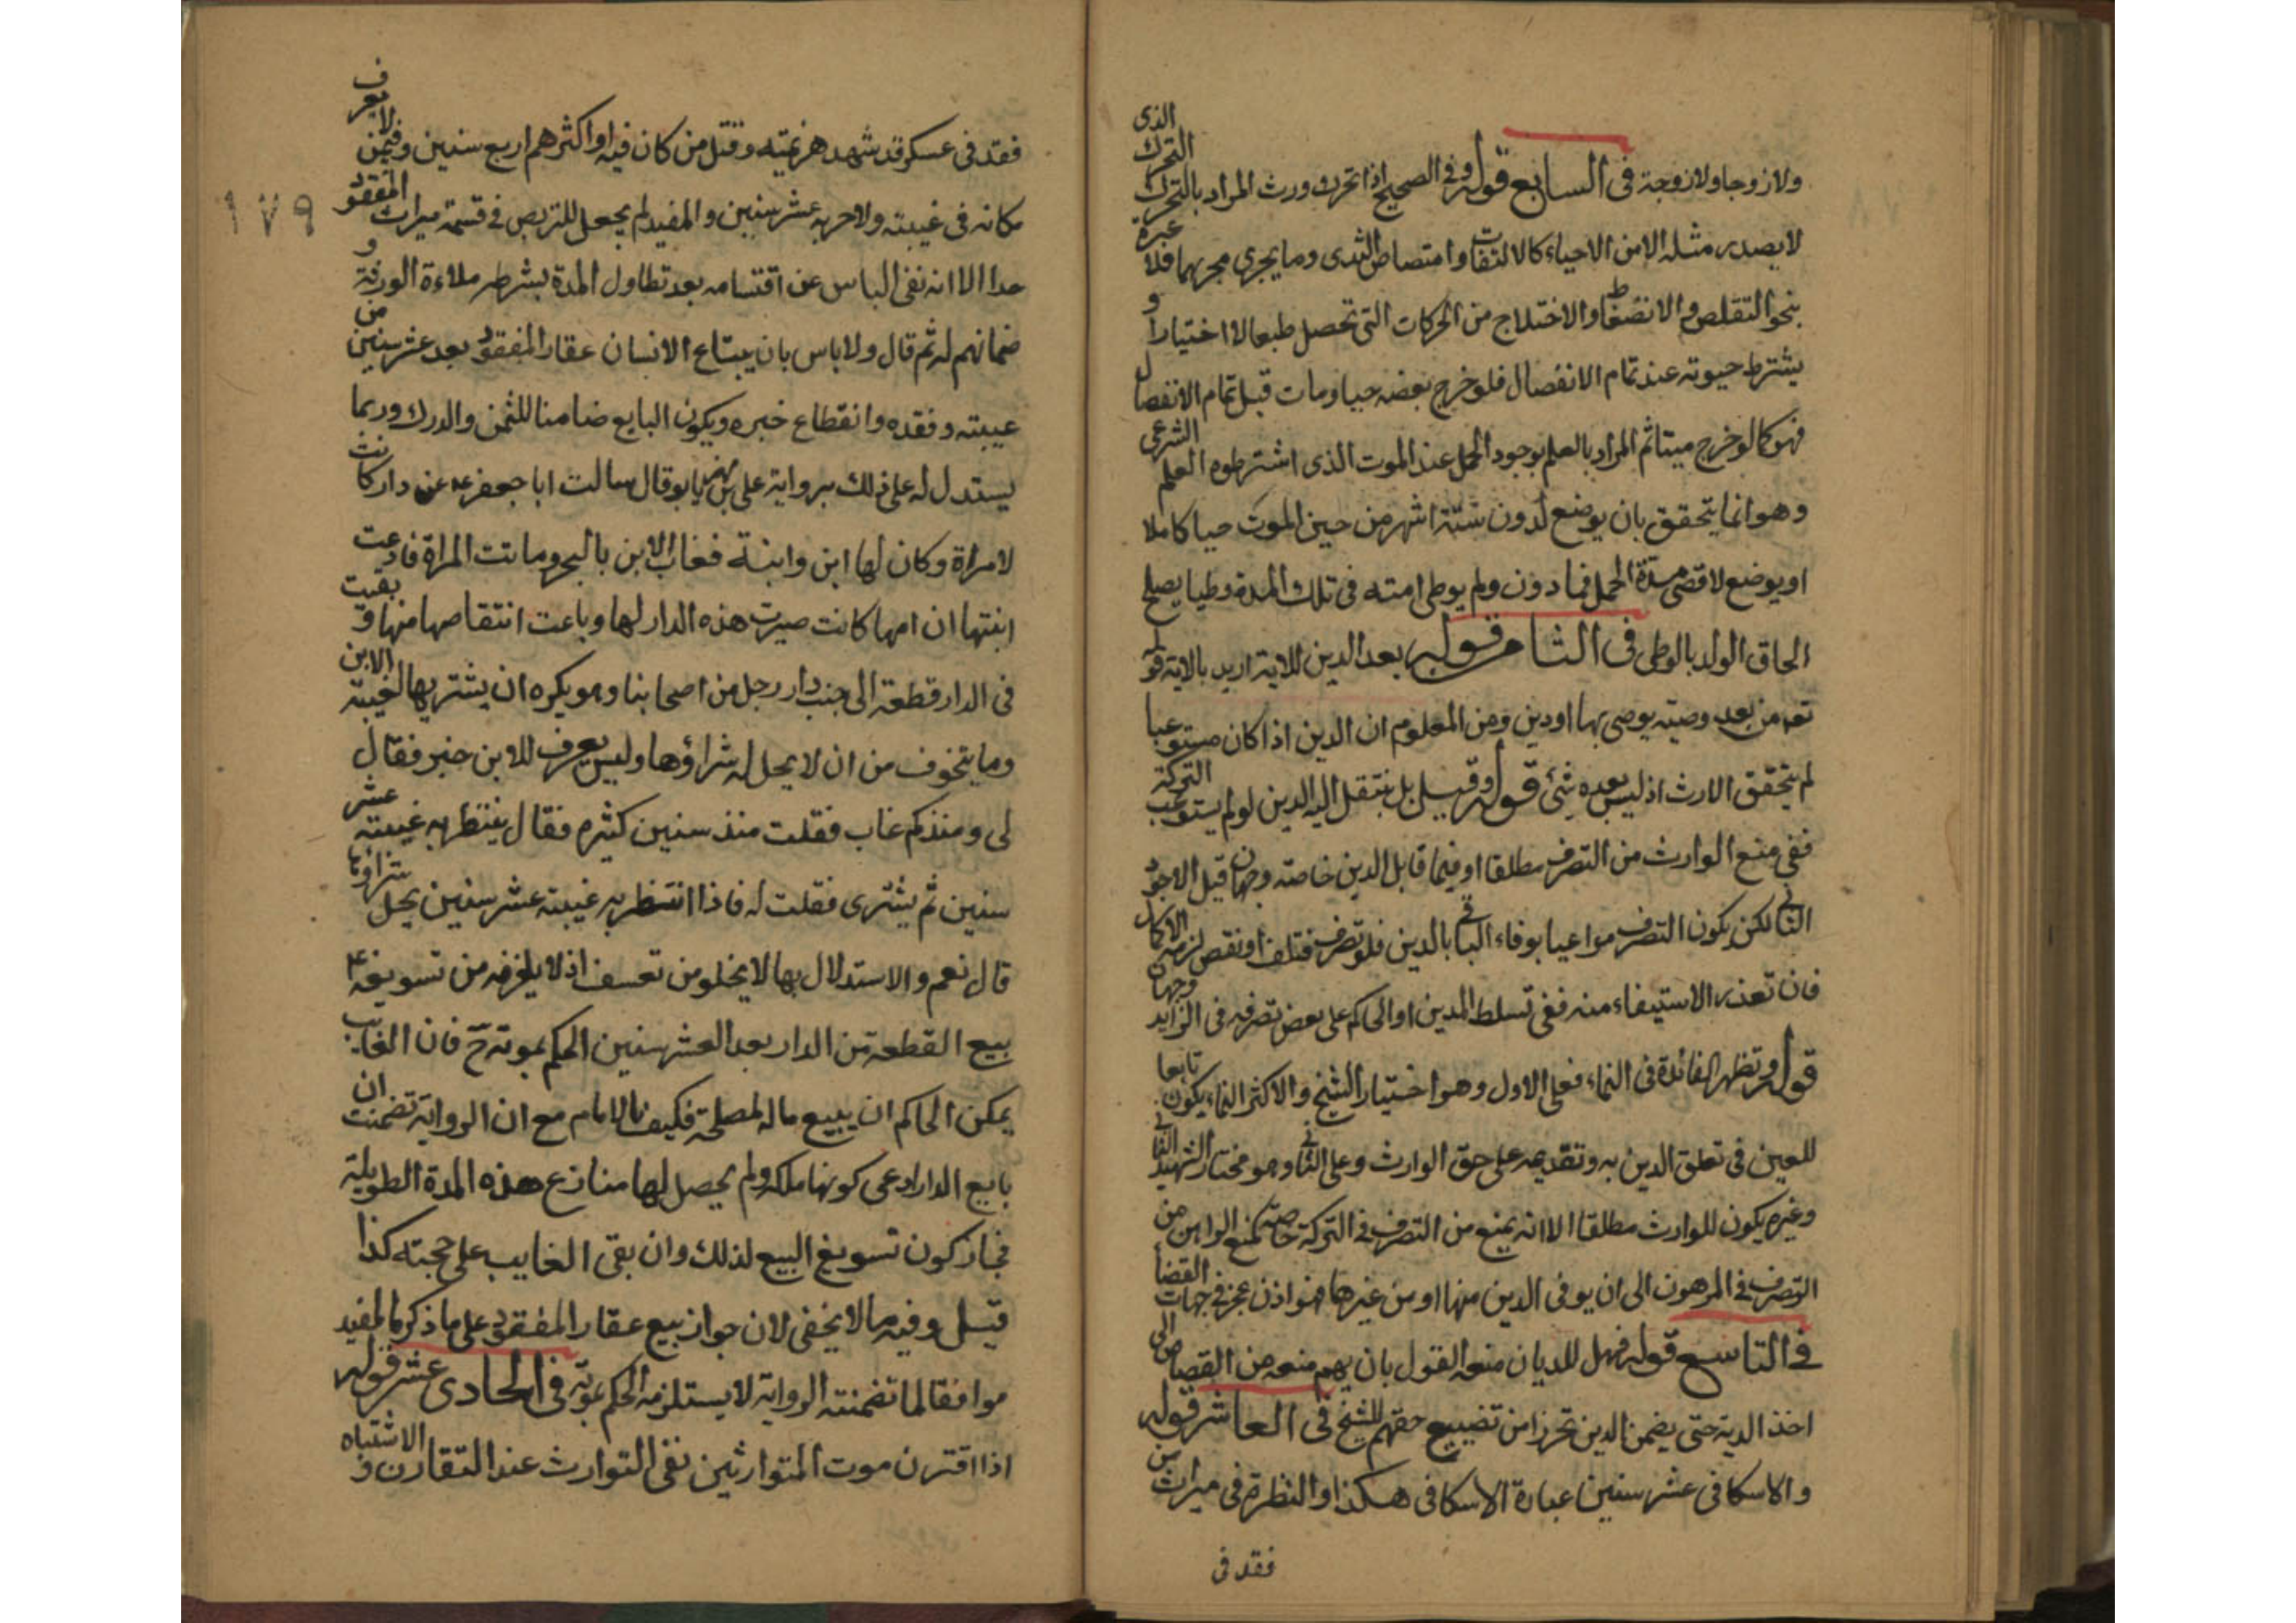 ولا زوجا ولا زوجة فى السابع قوله وفى الصحيح اذا تحرك ورث المراد بالتحرك التحرك الذى
لا يصدر مثله الا من الاحياء كالالتفات وامتصاص الثدى وما يجرى مجريهما فلا عبرة
بنحو التقلص والانضغاط والاختلاج من الحركات التى تحصل طبعا لا اختيارا و
يشترط حيوته عند تمام الانفصال فلو خرج بعضه حيا ومات قبل تمام الانفصال
فهو كما لو خرج ميتا ثم المراد بالعلم بوجود الحمل عند الموت الذى اشترطوه العلم الشرعى
وهو انما يتحقق بان يوضع لدون ستة اشهر من حين الموت حيا كاملا
او يوضع لاقصى مدة الحمل فما دون ولم يوطى امته فى تلك المدة وطيا يصلح
الحاق الولد بالوطى فى الثامن قوله بعد الدين للاية اريد بالاية قوله
تعه من بعد وصية يوصى بها او دين ومن المعلوم ان الدين اذا كان مستوعبا
لم يتحقق الارث اذ ليس بعده شئ قوله وقيل بل ينتقل اليه الدين لو لم يستوعب التركة
ففى منع الوارث من التصرف مطلقا او فيما قابل الدين خاصة وجهان قيل الاجود
الثانى لكن يكون التصرف مراعيا بوفاء الباقى بالدين فلو تصرف فتلف او نقص لزمه الاكمال
فان تعذر الاستيفاء منه ففى تسلط المدين او الحاكم على بعض تصرفه فى الزايد وجهان
قوله وتظهر الفائدة فى النماء فعلى الاول وهو اختيار الشيخ والاكثر النماء يكون تابعا
للعين فى تعلق الدين به وتقديمه على حق الوارث وعلى الثانى وهو مختار الشهيد الثانى
وغيره يكون للوارث مطلقا الا انه يمنع من التصرف فى التركة خاصة كمنع الراهن من
التصرف فى المرهون الى ان يوفى الدين منها او من غيرها فهو اذن عجز فى جهات القضا
فى التاسع قوله فهل للديان منعه القول بان لهم منعه من القصاص الى
اخذ الدية حتى يضمن الدين تحرزا من تضييع حقهم للشيخ فى العاشر قوله
والاسكافى عشر سنين عبارة الاسكافى هكذا والنظرة فى ميراث من
فقد فى
١٧٩
فقد فى عسكر قد شهد هزيمته وقتل من كان فيه او اكثرهم اربع سنين وفيمن لا يعرف
مكانه فى غيبته ولا حربه عشر سنين والمفيد لم يجعل للتربص فى قسمة ميراث المفقود
حدا الا انه نفى الباس عن اقتسامه بعد تطاول المدة بشرط ملاءة الورثة و
ضمانهم له ثم قال ولا باس بان يبتاع الانسان عقار المفقود بعد عشر سنين من
غيبته وفقده وانقطاع خبره ويكون البايع ضامنا للثمن والدرك وربما
يستدل له على ذلك برواية على بن مهزيار قال سالت ابا جعفر ع عن دار كانت
لامراة وكان لها ابن وابنة فغاب الابن بالبحر وماتت المراة فادعت
ابنتها ان امها كانت صيرت هذه الدار لها وباعت اشقاصها منها وبقيت
فى الدار قطعة الى جنب دار رجل من اصحابنا وهو يكره ان يشتريها لغيبة الابن
وما يتخوف من ان لا يحل له شراؤها وليس يعرف للابن خبر فقال
لى ومنذ كم غاب فقلت منذ سنين كثيره فقال ينتظر به غيبته عشر
سنين ثم يشترى فقلت له فاذا انتظر به غيبته عشر سنين يحل شراؤها
قال نعم والاستدلال بها لا يخلو من تعسف اذ لا يلزمه من تسويغه ع
بيع القطعة من الدار بعد العشر سنين الحكم بموته ح فان الغايب
يمكن الحاكم ان يبيع ماله لمصلحة فكيف بالامام مع ان الرواية تضمنت ان
بايع الدار ادعى كونها ملكه ولم يحصل لها منازع هذه المدة الطويلة
فجاز كون تسويغ البيع لذلك وان بقى الغايب على حجته كذا
قيل وفيه ما لا يخفى لان جواز بيع عقار المفقود على ما ذكره المفيد
موافقا لما تضمنته الرواية لا يستلزمه الحكم بموته فى الحادى عشر قوله
اذا اقترن موت المتوارثين نفى التوارث عند التقارن و الاشتباه